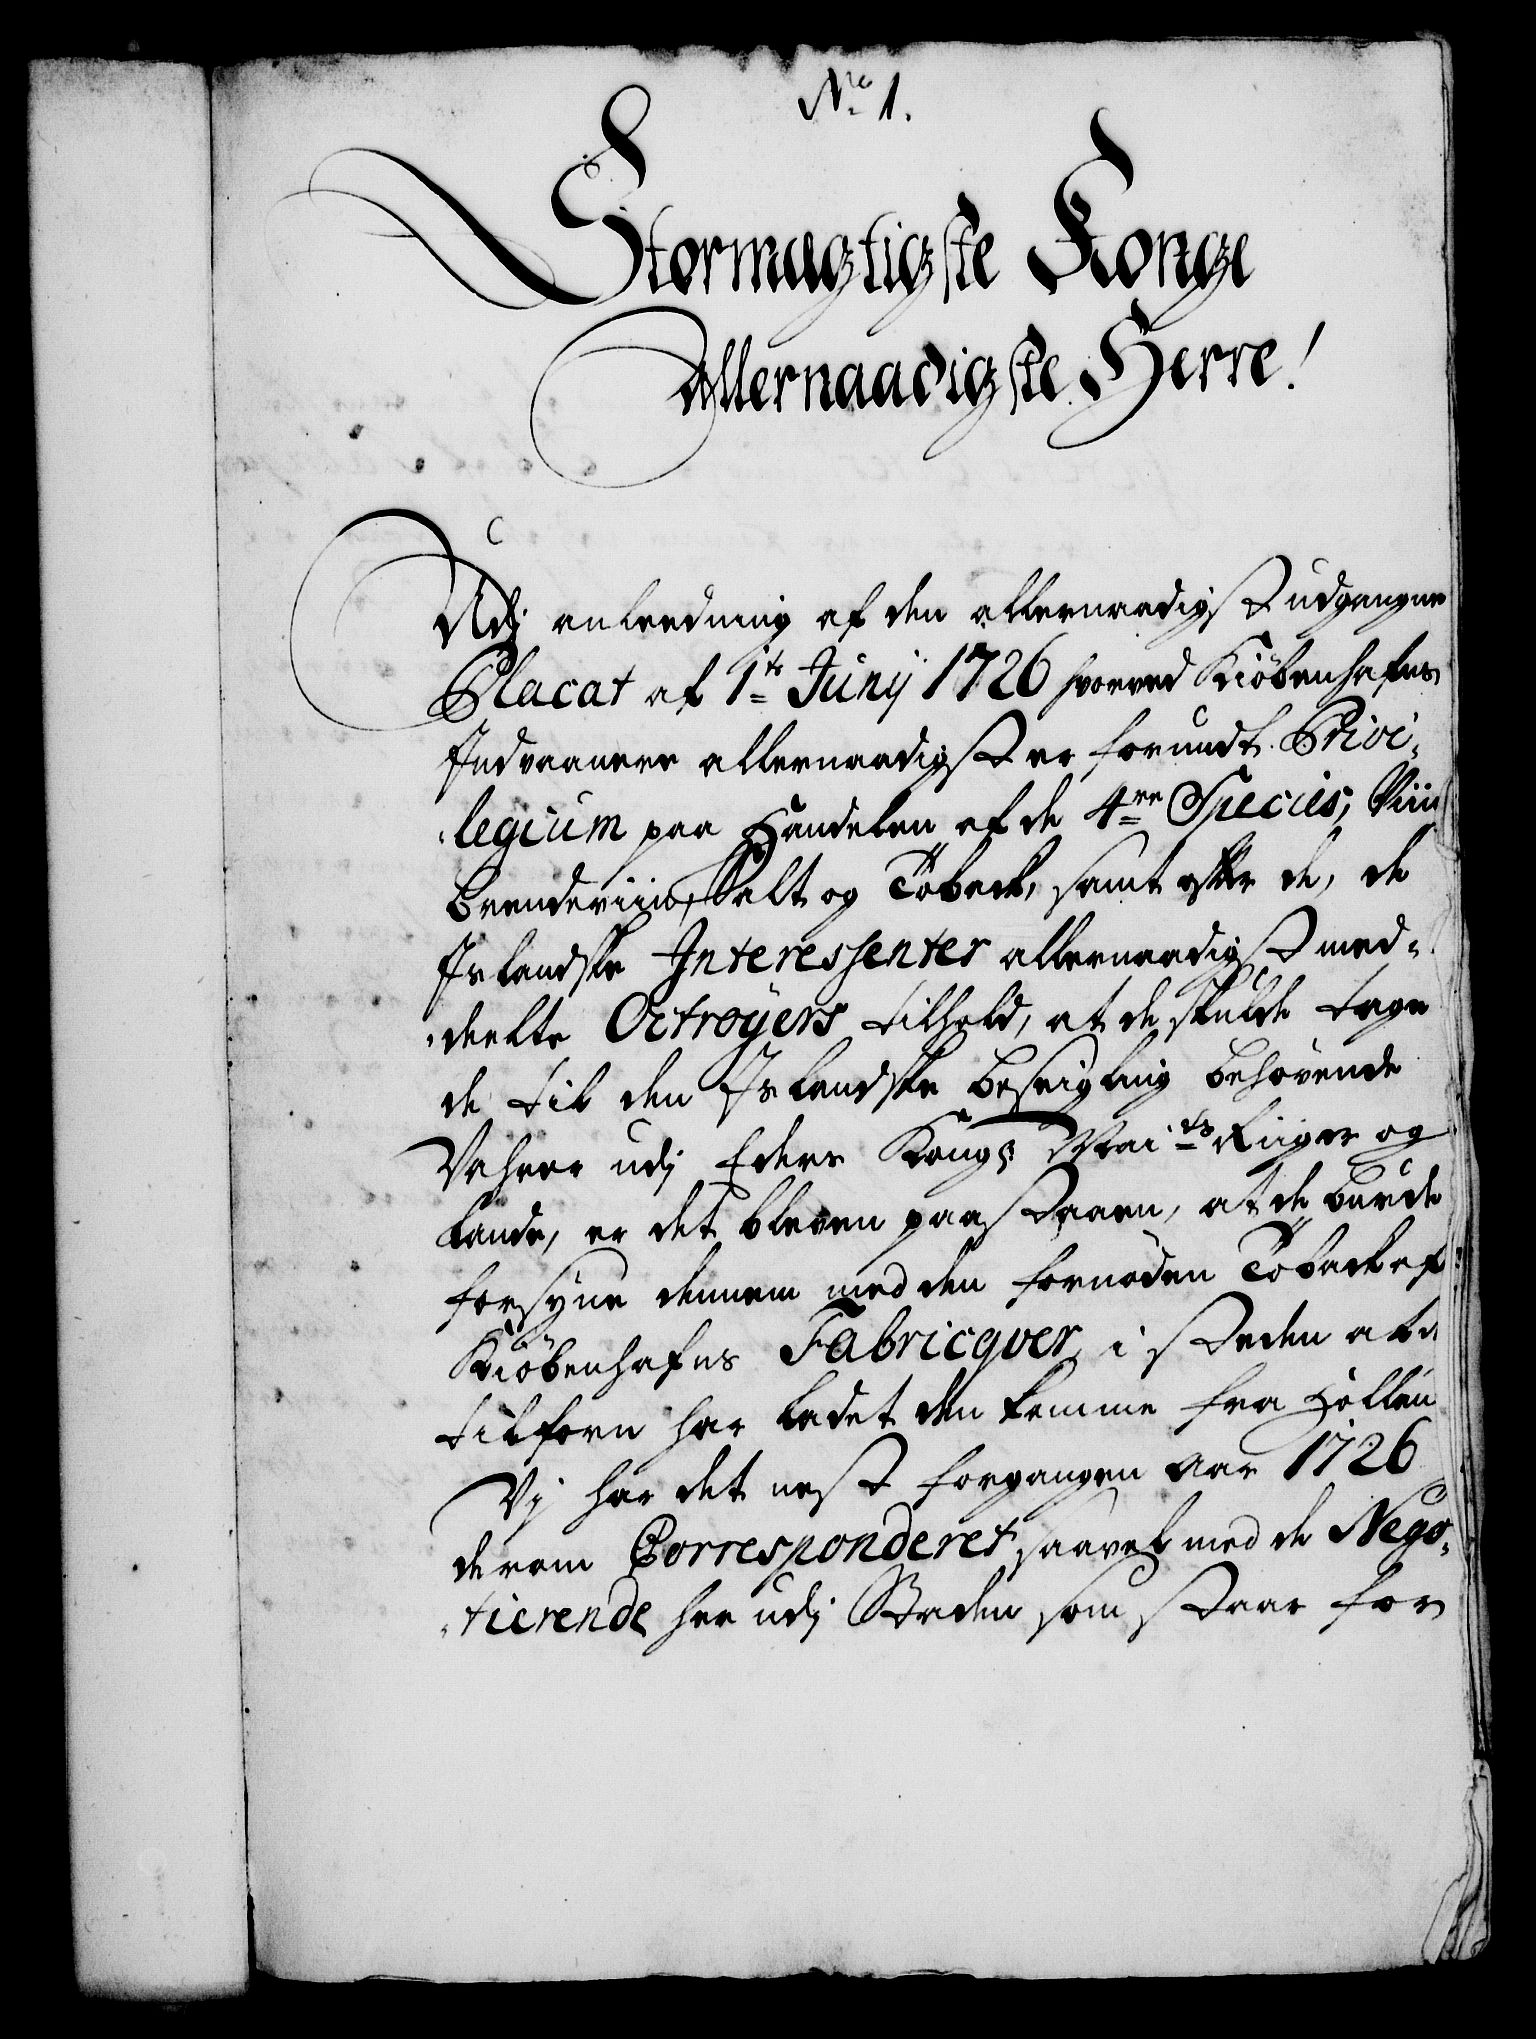 No 1.
Stormægtigste Konge
Allernaadigste Herre!
Udj anleedning af den allernaadigst udgangne
Placat af 1te Junij 1726 hvorved Kiöbenhafns
Indvaanere allernaadigst er forundt Privi-
legium paa Handelen af de 4re Species, Viin
Brendeviin, Salt og Toback, samt efter de, de
Islandske Interessenter allernaadigst med-
deelte Octroyers tilhold, at de skulde tage
de til den Islandske beseigling behövende
Vahrer udj Eders Kongs Maits Riiger og
Lande, er det bleven paastaaen, at de burde
forsyne dennem med den fornöden Toback af
Kiöbenhafns Fabricqver, i steden at de
tilforn har ladet den komme fra Hollen
Vj har det nest forgangen Aar 1726
derom Corresponderet saavel med de Nego-
tierende her udj Staden som staar for